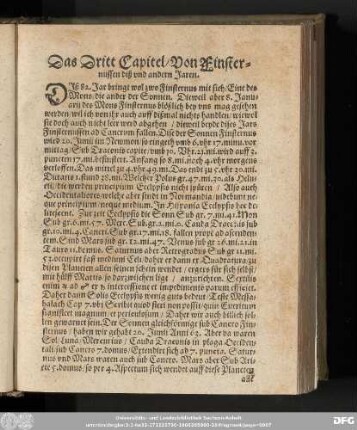 Das Dritt Capitel/ Von Finster-
nissen diß vnd andern Jaren.
Iß 82. Jar bringt wol zwo Finsternus mit sich: Eine des
Mons, die ander der Sonnen. Dieweil aber 8. Janu-
arii des Mons Finsternus blößlich bey vns mag gesehen
werden, wil ich von ihr auch auff dißmal nichts handlen, wiewol
sie doch auch nicht leer wird abgehen / dieweil beyde dises Jars
Finsternussen ad Cancrum fallen. Dise der Sonnen Finsternus
wird 20. Junii im Newmon so eingeht vmb 6. vhr 17. minu. vor
mittag/ Sub Draconis capite, vmb 10. Vhr. 21. mi. wird auff 2.
puncten 17. mi. befinstert. Anfang so 8. mi. nach 4. vhr morgens
verloffen. Das mittel zu 4. vhr 49. mi. Das end zu 5. vhr 30. mi.
Welcher Polus gr. 47. mi. 30. als
die werden principium Eclypsis nicht sehen / Also auch
Occidentalioris welche aber sind in Normandia, videbunt ne-
que principium neque medium. In Hispania Eclypsis
Zur zeit Eclypsis die Sonn Sub gr. 7. mi. 41. Mon
Sub gr. 6. mi. 57. Merc. Sub gr. 2. mi. 0. Cauda Draco: is sub
gr. 10. mi. 4. Cancri. Sub gr. 17. mi. 18. fallen
dentem. Sind Mars sub gr. 12. mi. 47. Venus sub gr. 26. mi. 21. in
Tauro 12. domo. Saturnus aber Retrogradus Sub gr. 11. mi.
53. occupirt fast medium Celi: daher er dann ex Quadratura zu
disen Planeten allen seinen schein wendet / ergreifft für sich selbst
mit hülff Martis so darzwischen ligt /
nium interesseret et impedimento parum efficiet.
Daher dann Solis Eclypsis wenig guts bedeut Teste Messa-
halach Cap 7. vbi Scribit quod fieri non possit quin Exercitium
significet magnum et periculosum / Daher wir auch billich sol-
len gewarnet sein. Der Sonnen gleichförmige sub Cancro Fin-
sternus / haben wir gehabt 20. Junii Anni 62. Aber da waren
Sol, Luna, Mercurius, Cauda Draconis in plaga Occiden-
tali sub Cancro 7. domus/ Extendirt sich ad 7. puncta. Satur-
nus vnd Mars waren auch sub Cancro. Mars aber Sub Arie-
te 5. domus, so per 4. Aspectum sich wendet auff dise Planeten